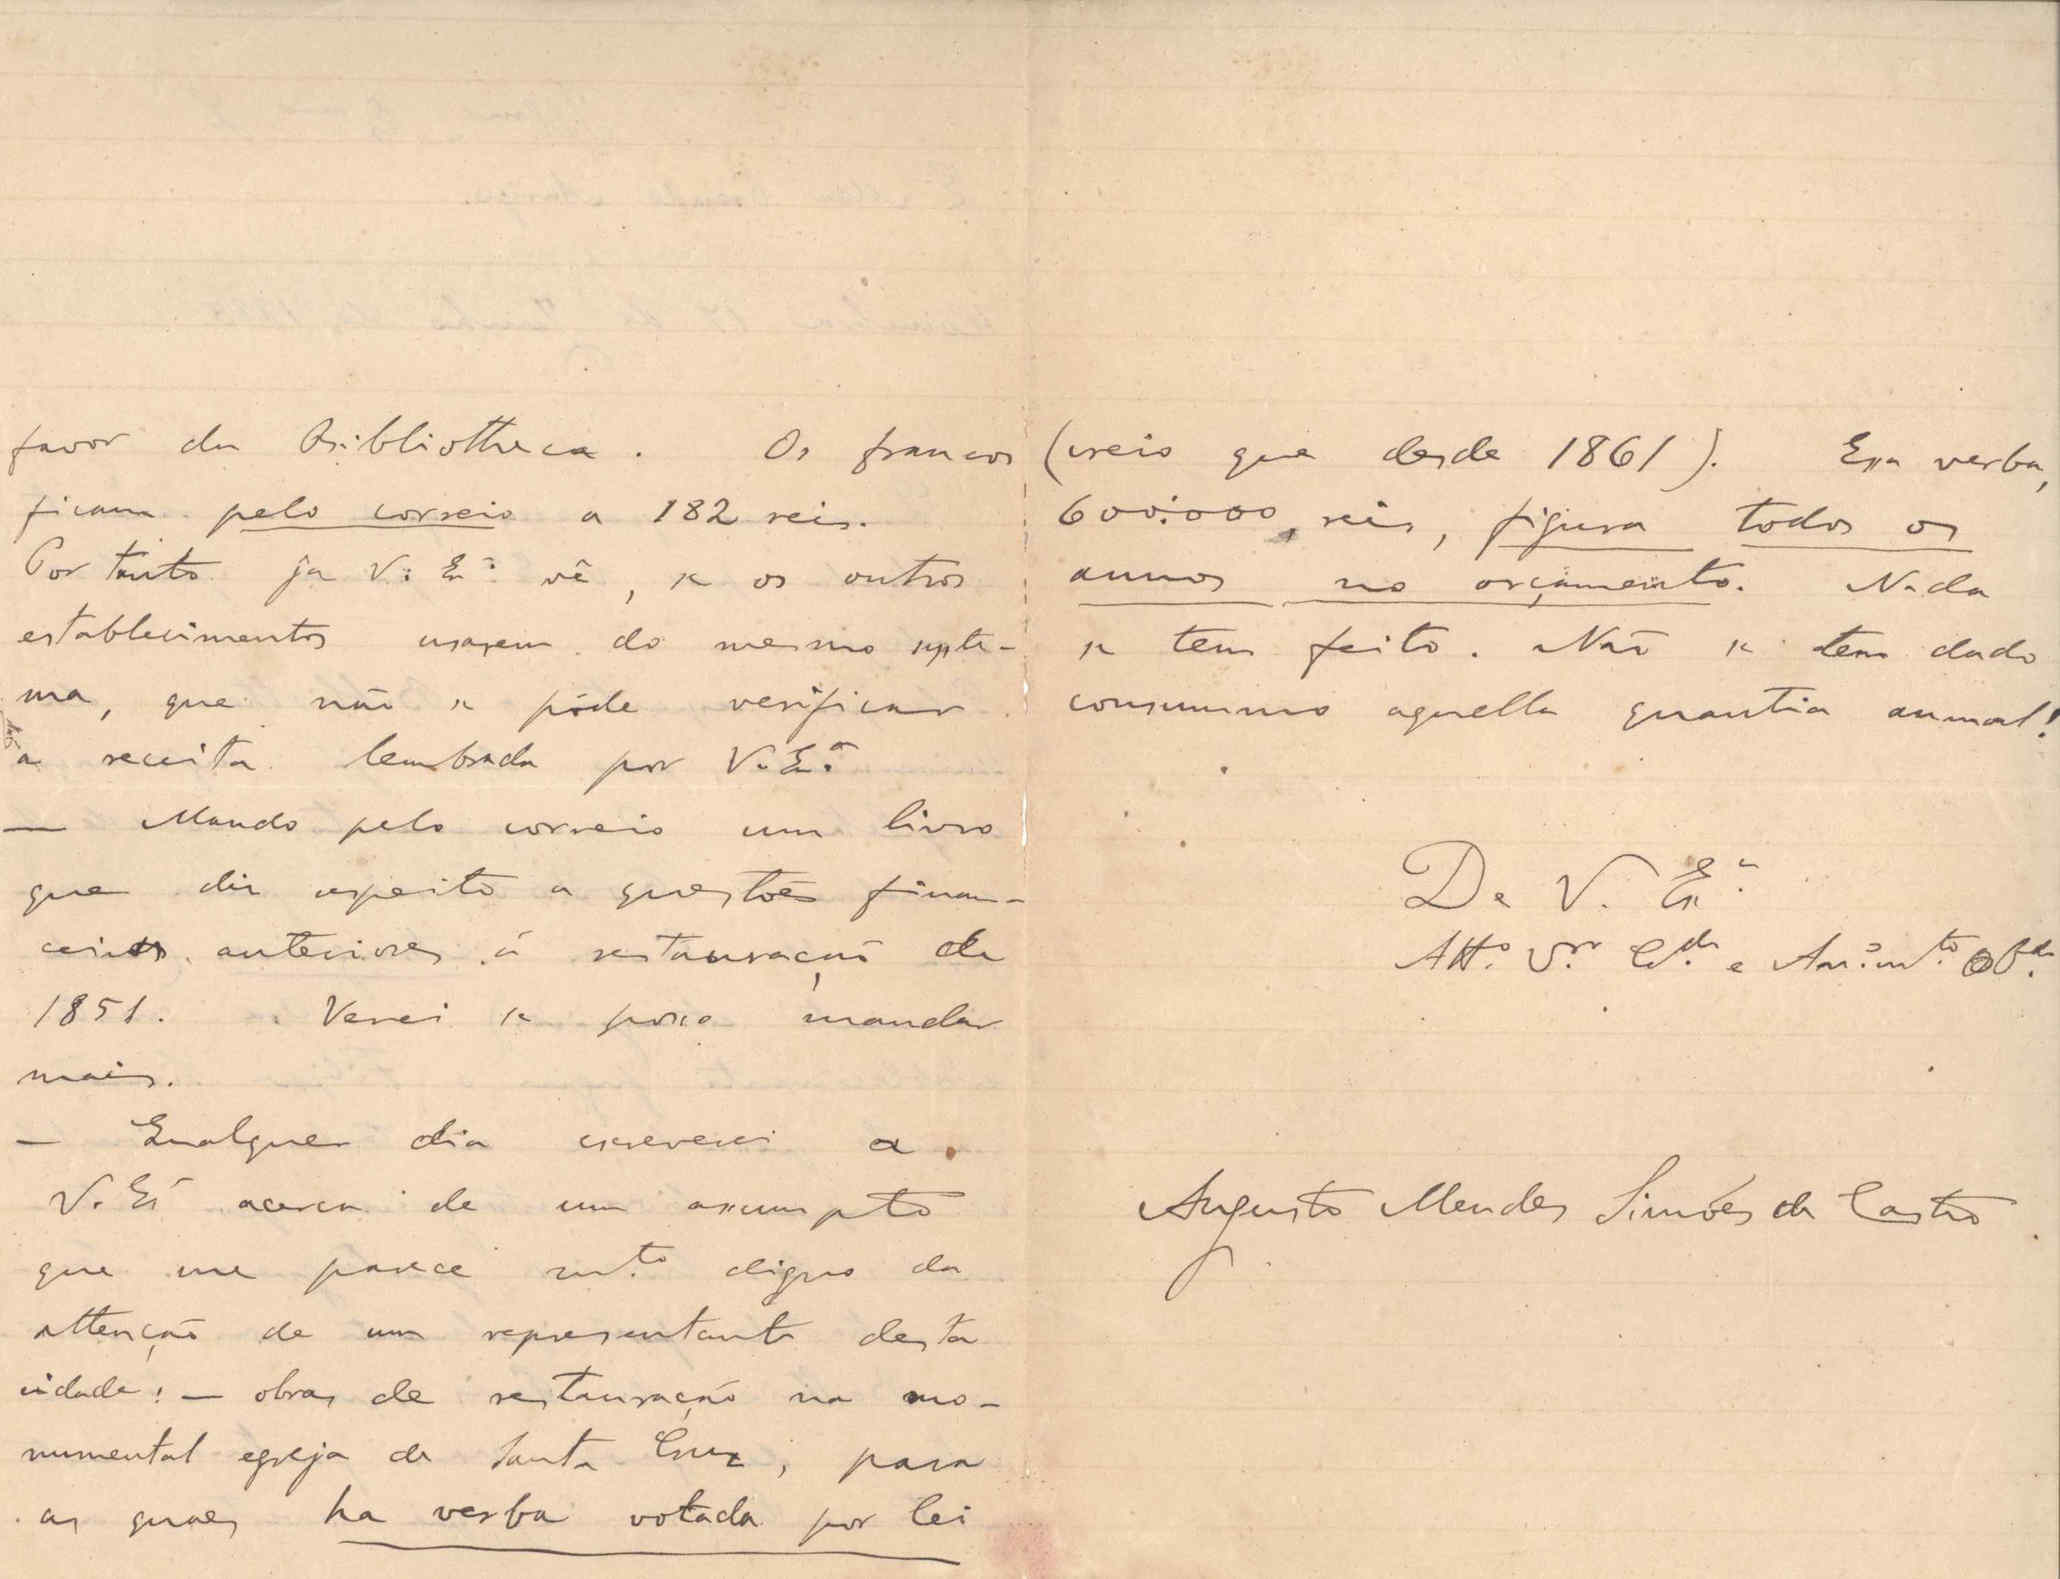 favor da Bibliotheca. Os francos
ficam pelo correio a 182 reis.
Por tanto ja V. Exª vê, se os outros
estabelecimentos usarem do mesmo syste-
ma, que não se póde verificar
a receita lembrada por V. Exª
— Mando pelo correio um livro
que diz respeito a questões finan-
ceiras anteriores á restauração de
1851. Verei se posso mandar
mais.
— Qualquer dia escreverei a
V. Exª acerca de um assumpto
que me parece mto digno da
attenção de um representante desta
cidade: — obras de restauração na mo-
numental egreja de Santa Cruz, para
as quaes ha verba votada por lei
(creio que desde 1861). Essa verba,
600:000 reis, figura todos os
annos no orçamento. Nada
se tem feito. Não se tem dado
consummo aquella quantia annual!
De V. Exª
Attº Vor Cdo e Obdo
Augusto Mendes Simões de Castro